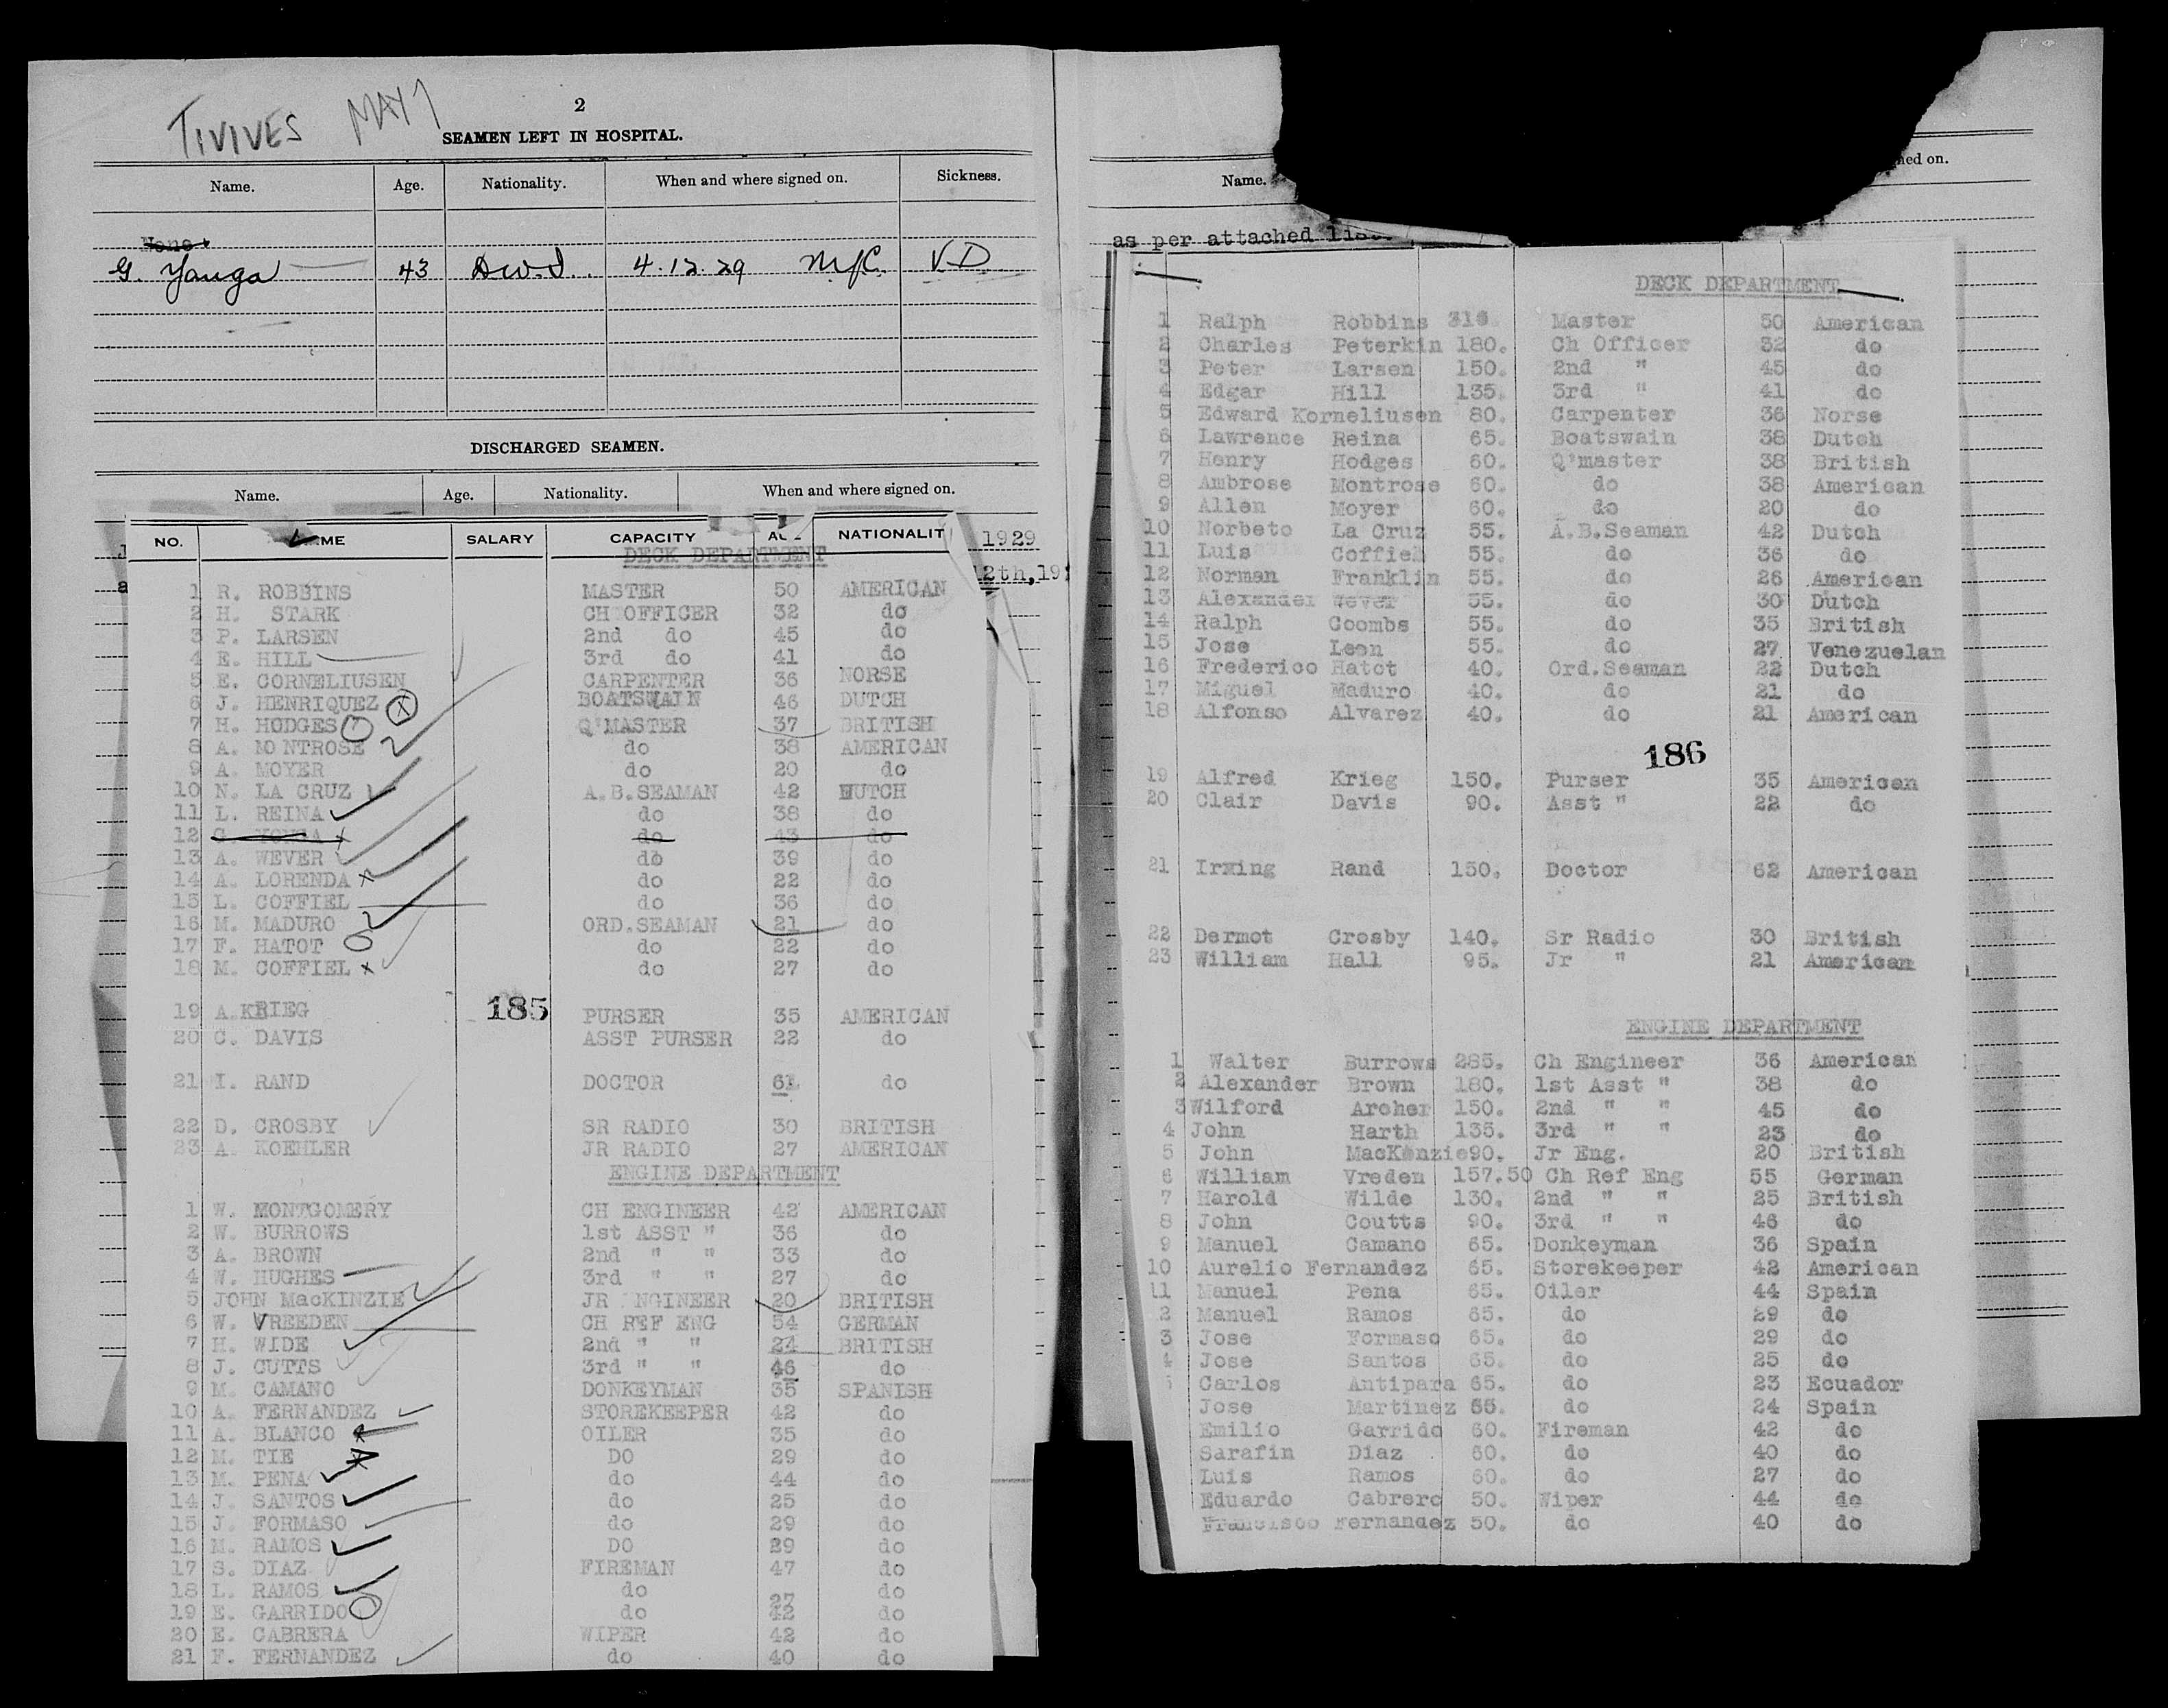 TIVIVES MAY 7
2
SEAMEN LEFT IN HOSPITAL.
Name. Age. Nationality. When and where signed on. Sickness.
None
G. Yanga 43 D.W.I. 4.12.29 V.D
DISCHARGED SEAMEN.
Name. Age. Nationality. When and where signed on.
1929
12th, 19
NO. SALARY CAPACITY NATIONALIT
DECK DEPARTMENT
1 R. ROBBINS MASTER 50 AMERICAN
2 H. STARK CH OFFICER 32 do
3 P. LARSEN 2nd do 45 do
4 E. HILL 3rd do 41 do
5 E. CORNELIUSEN CARPENTER 36 NORSE
6 J. HENRIQUEZ X BOATSWAIN 46 DUTCH
7 H. HODGES Q'MASTER 37 BRITISH
8 A. MONTROSE do 38 AMERICAN
9 A. MOYER do 20 do
10 N. LA CRUZ A.B.SEAMAN 42 DUTCH
11 L. REINA do 38 do
12 do 43 do
13 A. WEVER do 39 do
14 A. LORENDA x do 22 do
15 L. COFFIEL do 36 do
16 M. MADURO ORD.SEAMAN 21 do
17 F. HATOT do 22 do
18 M. COFFIEL x do 27 do
185
19 A.KRIEG PURSER 35 AMERICAN
20 C. DAVIS ASST PURSER 22 do
21 I. RAND DOCTOR 61 do
22 D. CROSBY SR RADIO 30 BRITISH
23 A. KOEHLER JR RADIO 27 AMERICAN
ENGINE DEPARTMENT
1 W. MONTGOMERY CH ENGINEER 42 AMERICAN
2 W. BURROWS 1st ASST " 36 do
3 A. BROWN 2nd " " 33 do
4 W. HUGHES 3rd " " 27 do
5 JOHN MacKINZIE JR NGINEER 20 BRITISH
6 W. VREEDEN CH REF ENG 54 GERMAN
7 H. WIDE 2nd " " 24 BRITISH
8 J. CUTTS 3rd " " 46 do
9 M. CAMANO DONKEYMAN 35 SPANISH
10 A. FERNANDEZ STOREKEEPER 42 do
11 A. BLANCO OILER 35 do
12 M. TIE DO 29 do
13 M. PENA do 44 do
14 J. SANTOS do 25 do
15 J. FORMASO do 29 do
16 M. RAMOS DO 29 do
17 S. DIAZ FIREMAN 47 do
18 L. RAMOS do 27 do
19 E. GARRIDO do 42 do
20 E. CABRERA WIPER 42 do
21 F. FERNANDEZ do 40 do
Name. ned on.
as per attached list
DECK DEPARTMENT
1 Ralph Robbins Master 50 American
2 Charles Peterkin 180. Ch Officer 32 do
3 Peter Larsen 150. 2nd " 45 do
4 Edgar Hill 135. 3rd " 41 do
5 Edward Korneliusen 80. Carpenter 36 Norse
6 Lawrence Reina 65. Boatswain 38 Dutch
7 Henry Hodges 60. Q'master 38 British
8 Ambrose Montrose 60. do 38 American
9 Allen Moyer 60. do 20 do
10 Norbeto La Cruz 55. A.B.Seaman 42 Dutch
11 Luis Coffiel 55. do 36 do
12 Norman Franklin 55. do 26 American
13 Alexander Wever 55. do 30 Dutch
14 Ralph Coombs 55. do 35 British
15 Jose Leon 55. do 27 Venezuelan
16 Frederico Hatot 40. Ord.Seaman 22 Dutch
17 Miguel Maduro 40. do 21 do
18 Alfonso Alvarez 40. do 21 American
186
19 Alfred Krieg 150. Purser 35 American
20 Clair Davis 90. Asst " 22 do
21 Irwing Rand 150. Doctor 62 American
22 Dermot Crosby 140. Sr Radio 30 British
23 William Hall 95. Jr " 21 American
ENGINE DEPARTMENT
1 Walter Burrows 285. Ch Engineer 36 American
2 Alexander Brown 180. 1st Asst " 38 do
3 Wilford Archer 150. 2nd " " 45 do
4 John Harth 135. 3rd " " 23 do
5 John MacKenzie 90. Jr Eng. 20 British
6 William Vreden 157.50 Ch Ref Eng 55 German
7 Harold Wilde 130. 2nd " " 25 British
8 John Coutts 90. 3rd " " 46 do
9 Manuel Camano 65. Donkeyman 36 Spain
10 Aurelio Fernandez 65. Storekeeper 42 American
11 Manuel Pena 65. Oiler 44 Spain
2 Manuel Ramos 65. do 29 do
3 Jose Formaso 65. do 29 do
4 Jose Santos 65. do 25 do
Carlos Antipara 65. do 23 Ecuador
Jose Martinez 65. do 24 Spain
Emilio Garrido 60. Fireman 42 do
Sarafin Diaz 60. do 40 do
Luis Ramos 60. do 27 do
Eduardo Cabrero 50. Wiper 44 do
Francisco Fernandez 50. do 40 do